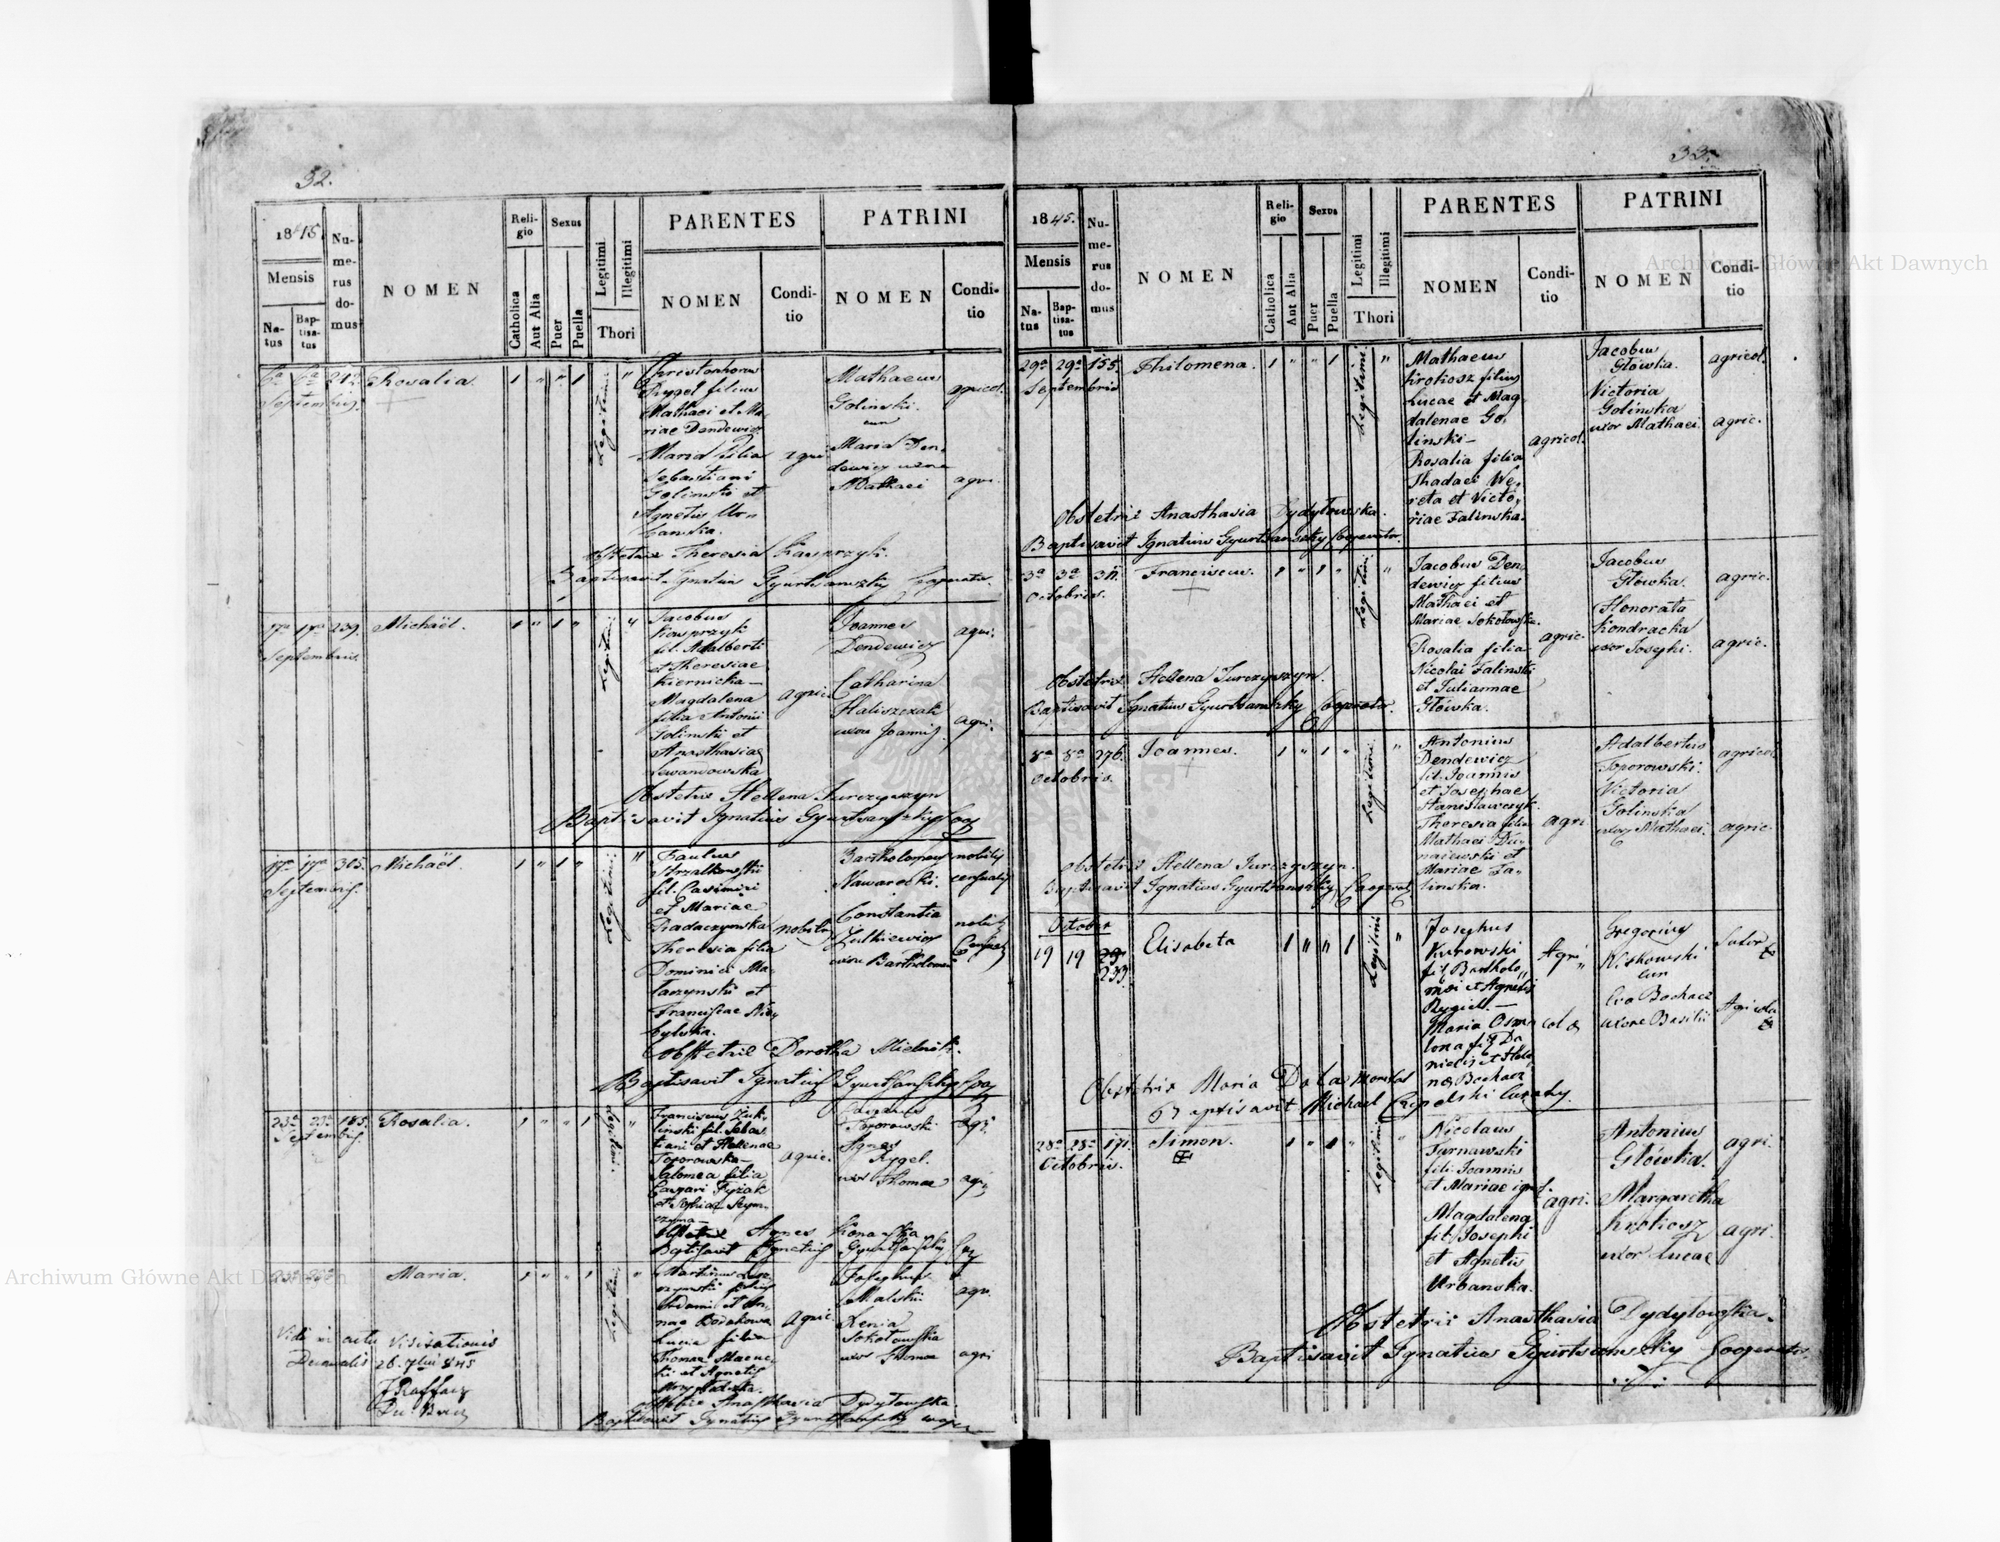 32.
1845.
Mensis
Na-
tus
Bap-
tisa-
tus
Nu-
me-
rus
do-
mus
NOMEN
Reli-
gio
Catholica
Aut Alia
Sexus
Puer
Puella
Legitimi
Illegitimi
Thori
PARENTES
NOMEN
Condi-
tio
PATRINI
NOMEN
Condi-
tio
6a 6a 212 Rosalia 1 " " 1 Legitimi "
Septembris
Rygel filius
Mathaei et Ma-
riae Dendewicz
Maria filia
Sebastiani
Golinski et
Agnetis Ur-
banska.
agri
Mathaeus
Golinski
cum
Maria Den-
dewicz uxore
Mathaei
agricol.
agri.
Obstetrix Theresia Kasprzyk.
Baptisavit Ignatius Gyurtsanszky Cooperator.
17a 17a 239. Michaël. 1 " 1 " Legitimi "
Septembris
Jacobus
Kasprzyk
fil. Adalberti
et Theresiae
Kiernicka—
Magdalena
filia Antonii
Golinski et
Anasthasiae
Lewandowska
agric.
Joannes
Dendewicz
Catharina
Haliszczak
uxor Joannis
agri.
agri.
Obstetrix Hellena Jurczyszyn
Baptisavit Ignatius Gyurtsanszky Coop
17a 17a 305. Michaël 1 " 1 " Legitimi "
Septembris.
Paulus
Strzalkowski
fil. Casimiri
et Mariae
Theresia filia
Dominici
et
Franciscae
nobiles
Bartholomeus
Nawarecki.
Constantia
Zulkiewicz
uxor Bartholomei
nobilis
nobilis
Obstetrix Dorotha Mielnik.
Baptisavit Ignatius Gyurtsanszky Coop
23a 23a 185. Rosalia. 1 " " 1 Legitimi "
Septembris.
Franciscus
linski fil. Sebas-
tiani et Hellenae
Toporowska—
Salomea filia
Caspari Fyzak
et Sophiae Szym-
agric.
Toporowski
Agnes
Rygel.
uxor Thomae
agri
agri
Obstetrix Agnes Konarska
Baptisavit Ignatius Gyurtsanszky Coop
25a 25a Maria. 1 " " 1 Legitimi "
Martinus
filius
Adami et An-
nae
Lucia filia
Thomae
et Agnetis
agric.
Josephus
Malski
Xenia
Sokołowska
uxor Thomae
agri.
agri
Vidi in actu Visitationis
Decanalis 26. 7bris 845
Obstetrix Anasthasia Dydytowska.
Baptisavit Ignatius Gyurtsanszky
33.
1845.
Mensis
Na-
tus
Bap-
tisa-
tus
Nu-
me-
rus
do-
mus
NOMEN
Reli-
gio
Catholica
Aut Alia
Sexus
Puer
Puella
Legitimi
Illegitimi
Thori
PARENTES
NOMEN
Condi-
tio
PATRINI
NOMEN
Condi-
tio
29a 29a 155. Philomena. 1 " " 1 Legitimi "
Septembris
Mathaeus
Krokosz filius
Lucae et Mag
dalenae Go,
linski—
Rosalia filia
Thadaei We,
reta et Victo,
riae Falinska.
agricol.
Jacobus
Glowka.
Victoria
Golinska
uxor Mathaei
agricol.
agric.
Obstetrix Anasthasia Dydytowska.
Baptisavit Ignatius Gyurtsanszky Cooperator.
3a 3a 311. Franciscus. 1 " 1 " Legitimi "
Octobris.
Jacobus Den,
dewicz filius
Mathaei et
Mariae Sokołowska.
Rosalia filia
Nicolai Falinski
et Juliannae
Glówka.
agric.
Jacobus
Glówka.
Honorata
Kondracka
uxor Josephi.
agric.
agric.
Obstetrix Hellena Jurczyszyn.
Baptisavit Ignatius Gyurtsanszky Cooperator.
8a 8a 276. Joannes. 1 " 1 " Legitimi "
Octobris.
Antonius
Dendewicz
fil. Joannis
et Josephae
Stanisławczyk.
Theresia filia
Mathaei Du-
naiewski et
Mariae Fa-
linska.
agri
Adalbertus
Toporowski.
Victoria
Golinska
uxor Mathaei.
agricol
agric.
Obstetrix Hellena Jurczyszyn.
Baptisavit Ignatius Gyurtsanszky Cooperat
October
19 19 233. Elisabeta 1 " " 1 Legitimi "
Josephus
Kurowski
fil. Bartholo,
mei et Agnetis
Rygiel.—
Maria Osma
lona filia Da
nielis et Hele
nae Bochacz
Agri
colae
Gregorius
Kiskowski
cum
Eva Bochacz
uxore Basilii
Sutor
Agricola
Obstetrix Maria Dola
Baptisavit Michael
28a 28a 171. Simon. 1 " 1 " Legitimi "
Octobris.
Nicolaus
Tarnawski
fil. Joannis
et Mariae
Magdalena
fil. Josephi
et Agnetis
Urbanska.
agri.
Antonius
Glówka.
Margaretha
Krokosz
uxor Lucae
agri.
agri.
Obstetrix Anasthasia Dydytowska.
Baptisavit Ignatius Gyurtsanszky Cooperator.
Archiwum Główne Akt Dawnych
Archiwum Główne Akt Dawnych